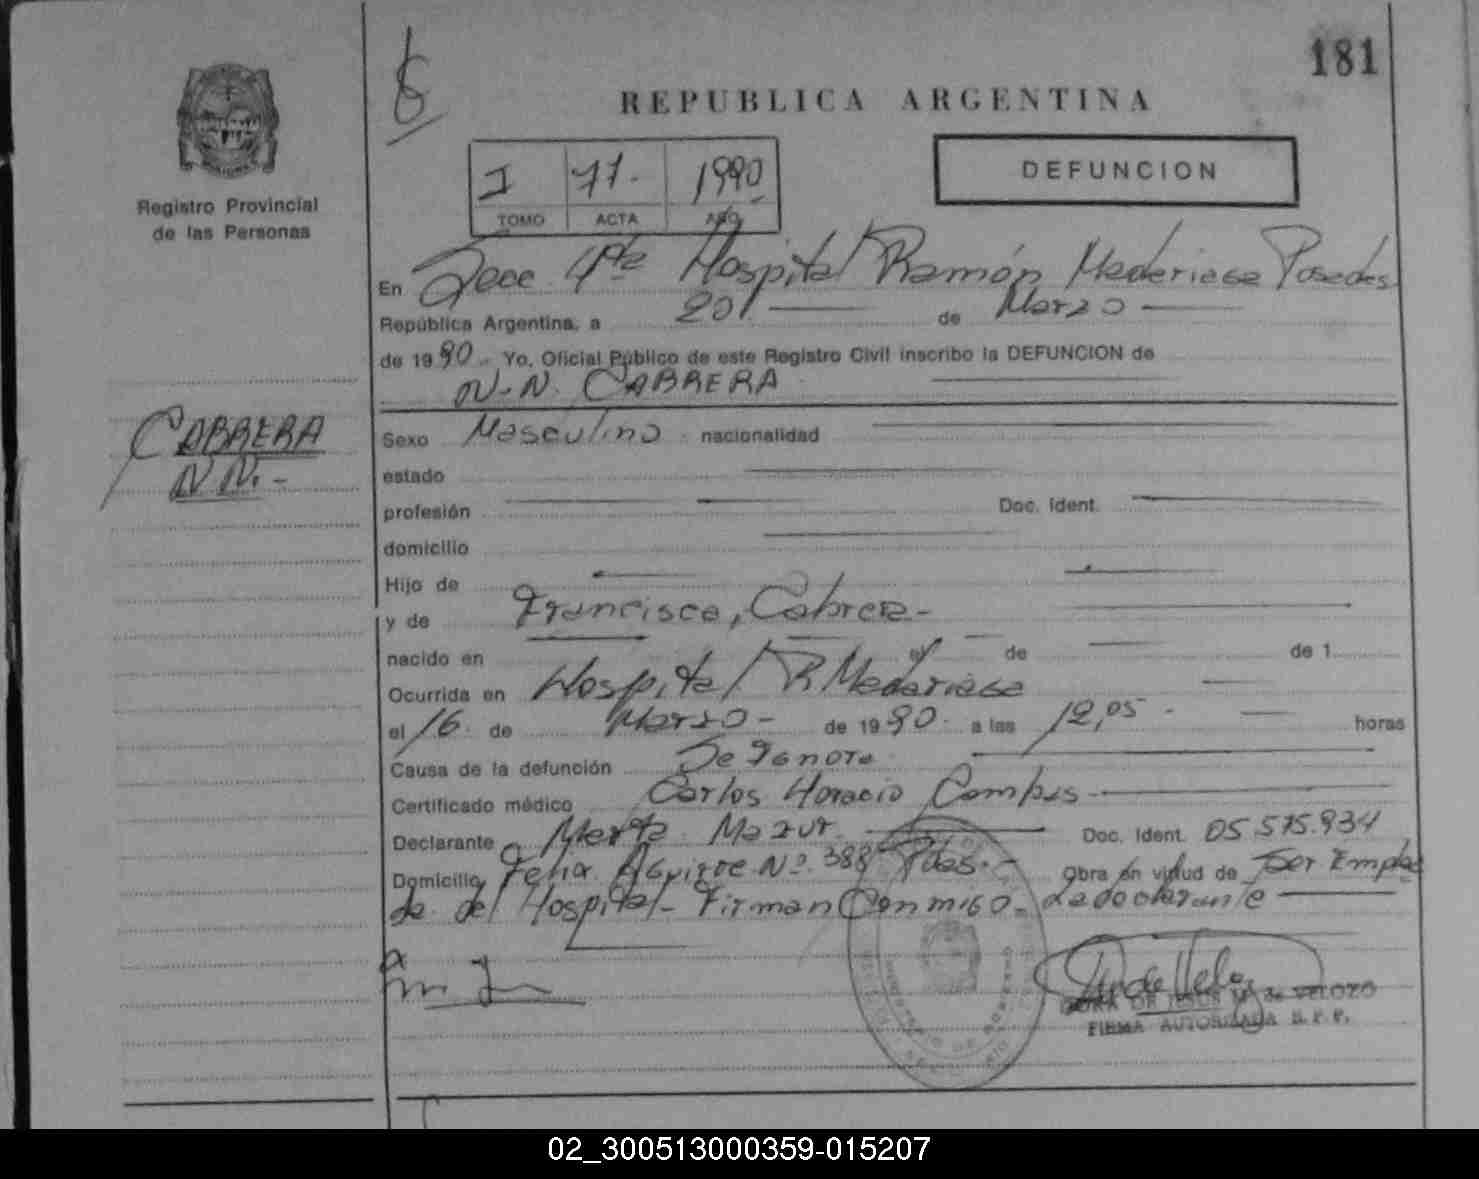 181
REPUBLICA ARGENTINA
DEFUNCION
I 71. 1990
TOMO ACTA AÑO
Registro Provincial
de las Personas
En Secc. 1ra Hospital Ramón Madariaga Posadas
República Argentina, a 20 de Marzo
de 1990. Yo, Oficial Público de este Registro Civil inscribo la DEFUNCION de
N.N. CABRERA
CABRERA
N.N.-
Sexo Masculino nacionalidad
estado
profesión Doc. ident.
domicilio
Hijo de
y de Francisca, Cabrera-
nacido en el de de 1
Ocurrida en Hospital R Madariaga
el 16 de Marzo- de 1990 a las 12,05 - horas
Causa de la defunción Se Ignora
Certificado médico Carlos Horacio
Declarante Marta Mazur Doc. Ident. 05.575.934
Domicilio Felix Aguirre Nº 388 Pdas.- Obra en virtud de Ser Emplea
da del Hospital- Firman Conmigo- La declarante
DORA DE JESUS M. de VELOZO
FIRMA AUTORIZADA R.P.P.
02_300513000359-015207